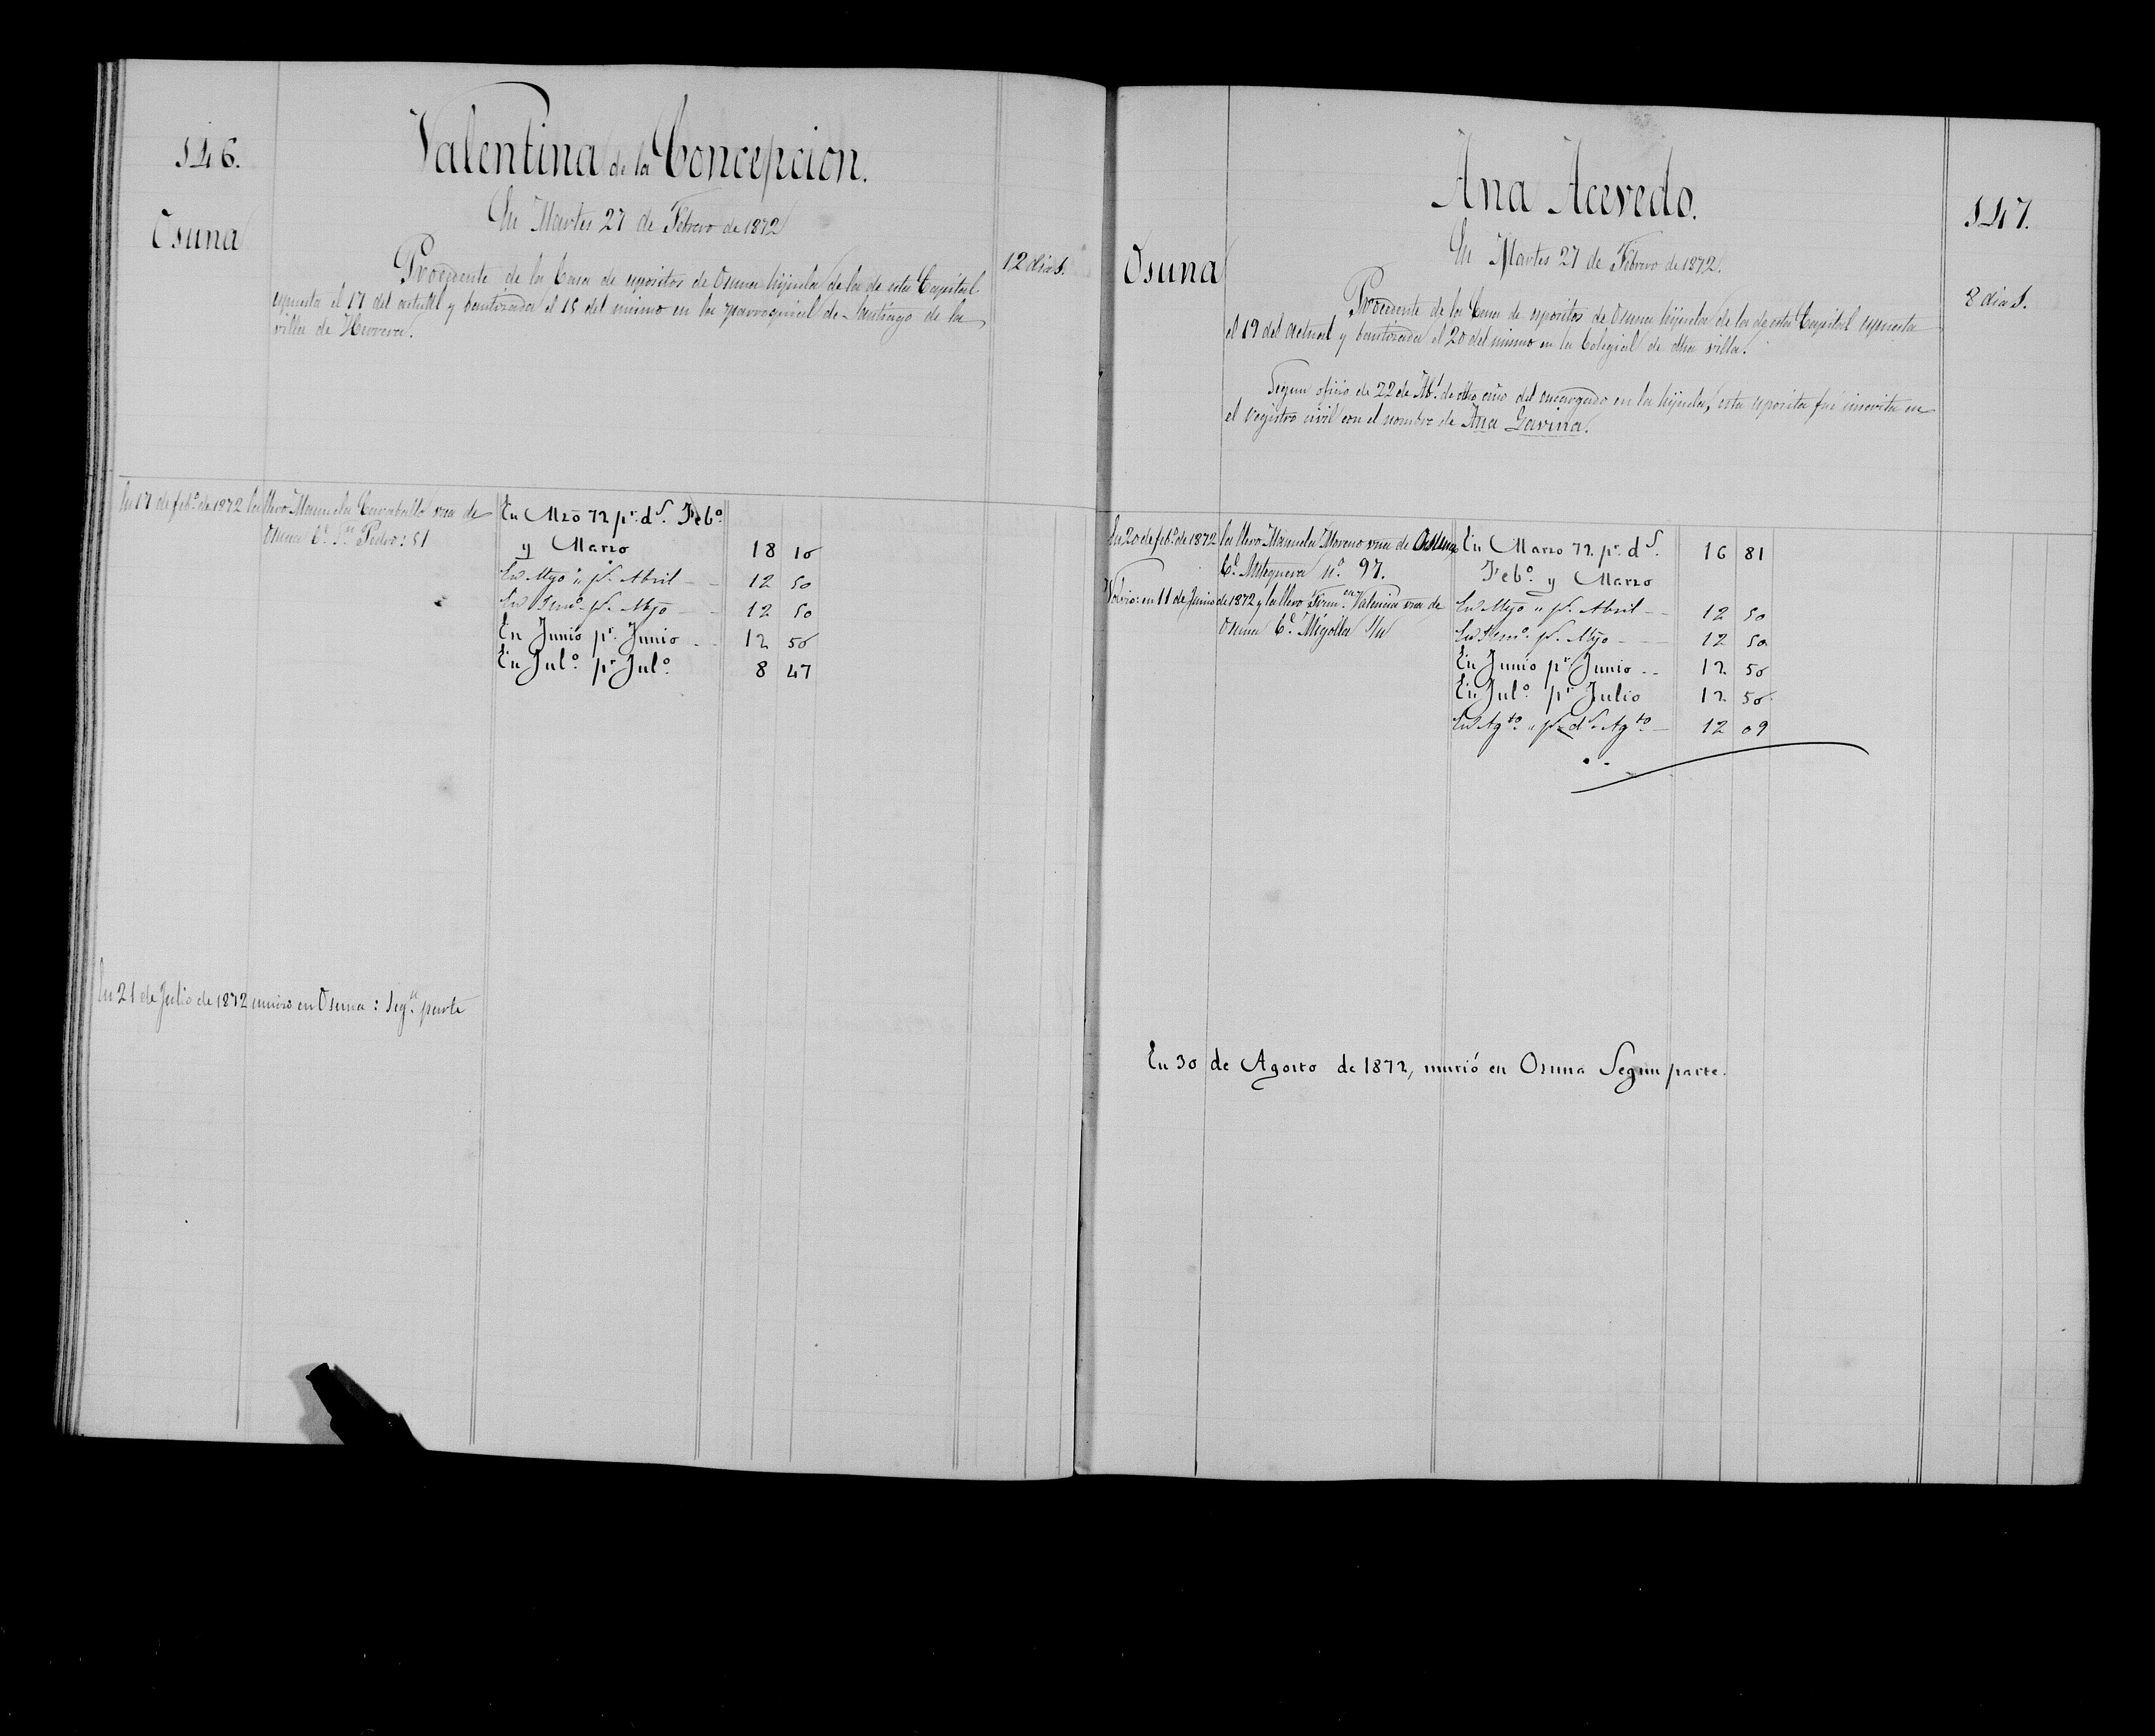 146.
Valentina de la Concepcion.
En Martes 27 de Febrero de 1872
Osuna
12 dias.
Procedente de la Casa de espositos de Osuna hijuela de la de esta Capital
espuesta el 17 del actual y bautizada el 15 del mismo en la parroquial de Santiago de la
villa de Herrera.
En 17 de feb.º de 1872 la llevo Manuela Caraballo vna de
Osuna C.e Sn Pedro: 51
En Mzo 72 pr. ds. Feb.º
y Marzo 18 10
En Myo " pr. Abril 12 50
En Jun.º pr. Myo 12 50
En Junio pr. Junio 12 50
En Jul.º pr Jul.º 8 47
En 21 de Julio de 1872 murio en Osuna: Seg.n parte
Ana Acevedo.
147.
En Martes 27 de Febrero de 1872.
Osuna
8 dias.
Procedente de la Casa de espositos de Osuna hijuela de la de esta Capital espuesta
el 19 del actual y bautizada el 20 del mismo en la Colegial de dha villa.
Segun oficio de 22 de de dho año del encargado en la hijuela, esta esposita fué inscrita en
el registro civil con el nombre de Ana Gavina.
En 20 de feb.º de 1872 la llevo Manuela Moreno vna de Osuna
C.e Antequera n.º 97.
Volvio: en 11 de Junio de 1872 y la llevo Valencia vna de
Osuna C.e Migolla S/n
En Marzo 72 pr. ds. 16 81
Feb.º y Marzo
En Myo " pr. Abril 12 50
En Jun.º pr. Myo 12 50
En Junio pr Junio 12 50
En Jul.º pr Julio 12 50
En Ag.to " pr ds. Ag.to 12 09
En 30 de Agosto de 1872, murió en Osuna Segun parte.